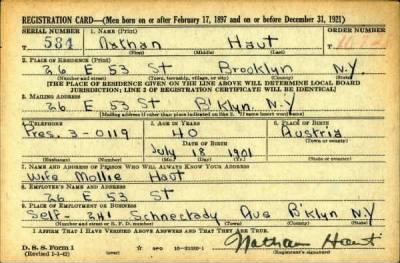 REGISTRATION CARD—(Men born on or after February 17, 1897 and on or before December 31, 1921)
SERIAL NUMBER 1. NAME (Print) ORDER NUMBER
581 Nathan Haut
(First) (Middle) (Last)
2. PLACE OF RESIDENCE (Print)
26 E 53 St Brooklyn N.Y
(Number and street) (Town, township, village, or city) (County) (State)
[THE PLACE OF RESIDENCE GIVEN ON THE LINE ABOVE WILL DETERMINE LOCAL BOARD
JURISDICTION; LINE 2 OF REGISTRATION CERTIFICATE WILL BE IDENTICAL]
3. MAILING ADDRESS
26 E 53 St B'klyn. N.Y
[Mailing address if other than place indicated on line 2. If same insert word same]
4. TELEPHONE 5. AGE IN YEARS 6. PLACE OF BIRTH
Pres. 3-0119 40 Austria
DATE OF BIRTH (Town or county)
July 18 1901
(Exchange) (Number) (Mo.) (Day) (Yr.) (State or country)
7. NAME AND ADDRESS OF PERSON WHO WILL ALWAYS KNOW YOUR ADDRESS
Wife Mollie Haut
8. EMPLOYER'S NAME AND ADDRESS
26 E 53 St
9. PLACE OF EMPLOYMENT OR BUSINESS
Self- 241 Schnectady Ave B'klyn N.Y
(Number and street or R. F. D. number) (Town) (County) (State)
I AFFIRM THAT I HAVE VERIFIED ABOVE ANSWERS AND THAT THEY ARE TRUE.
D. S. S. Form 1 GPO Nathan Haut
(Revised 1-1-42) (Registrant's signature)